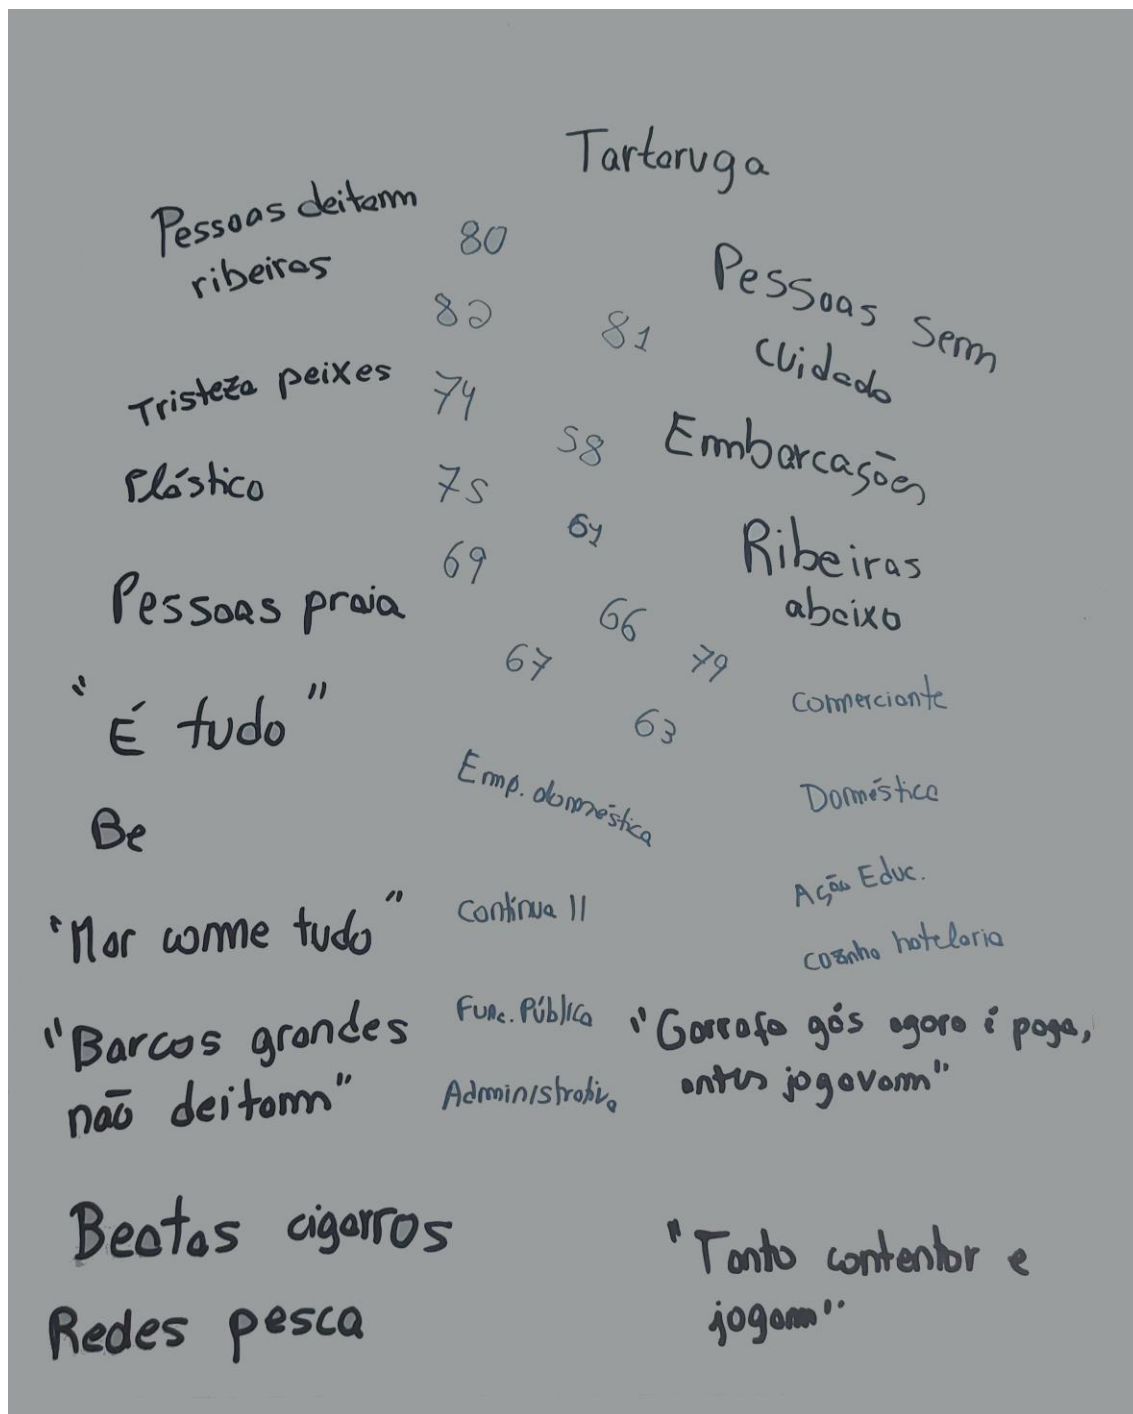 Tartaruga
Pessoas deitam
ribeiras
80
Pessoas sem
cuidado
82
81
Tristeza peixes
74
58
Embarcações
Plástico
75
61
Ribeiras
abaixo
69
Pessoas praia
66
67
79
"É tudo"
63
Comerciante
Emp. doméstica
Doméstica
Be
Ação Educ.
"Mar come tudo"
Contínua II
cozinha hotelaria
"Barcos grandes
não deitam"
Func. Pública
Administrativa
"Garrafa gás agora é paga,
antes jogavam"
Beatas cigarros
"Tanto contentor e
jogam"
Redes pesca